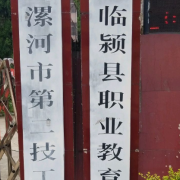 漯河市第二技工
临颍县职业教育